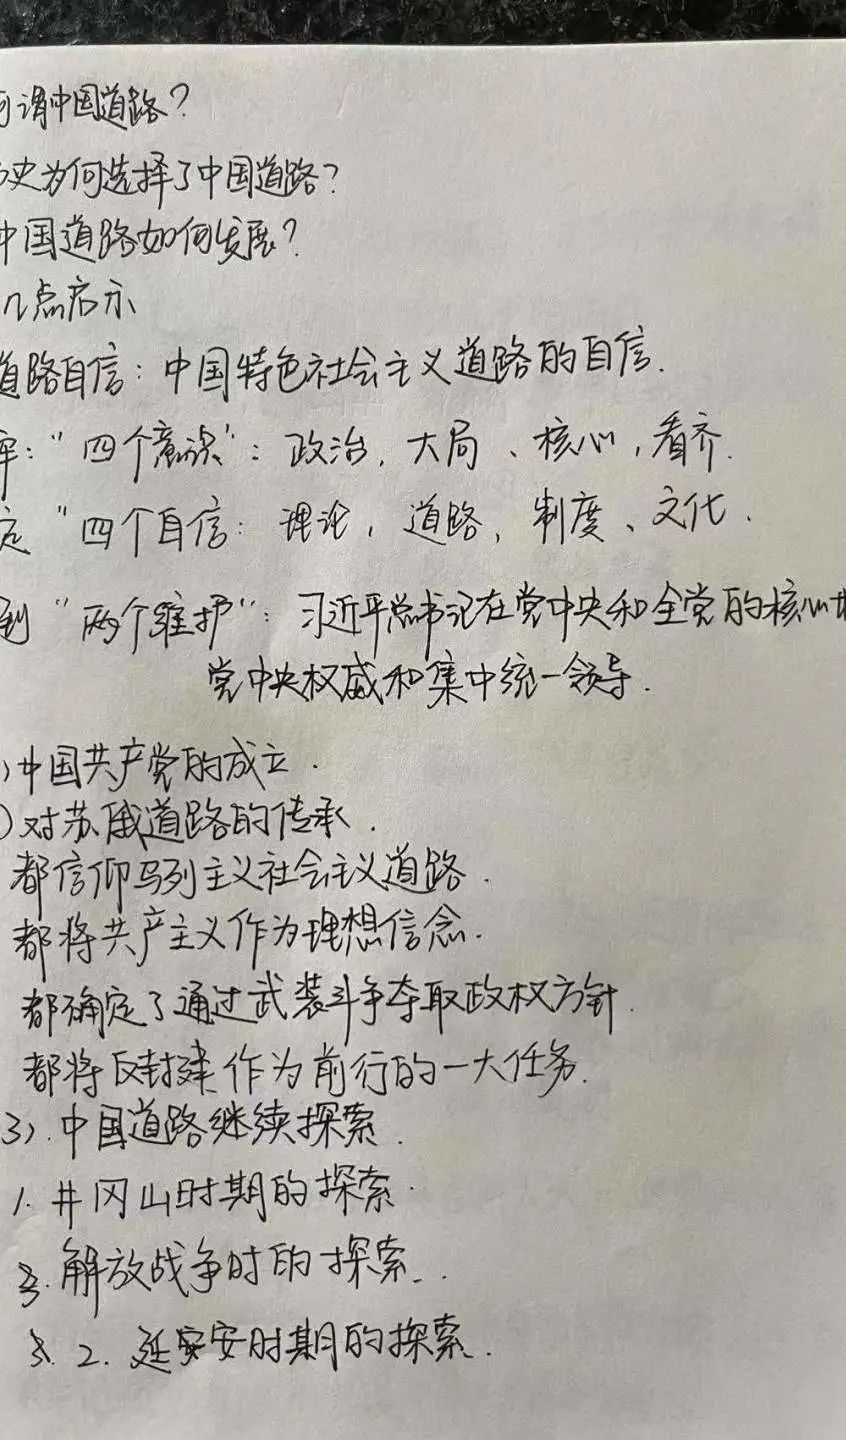 谓中国道路？
史为何选择了中国道路？
中国道路如何发展？
几点启示
道路自信：中国特色社会主义道路的自信．
牢：“四个意识”：政治，大局、核心，看齐．
定“四个自信：理论，道路，制度、文化．
到“两个维护”：习近平总书记在党中央和全党的核心地
党中央权威和集中统一领导．
)中国共产党的成立．
)对苏俄道路的传承．
都信仰马列主义社会主义道路．
都将共产主义作为理想信念．
都确定了通过武装斗争夺取政权方针．
都将反封建作为前行的一大任务．
3)．中国道路继续探索．
1．井冈山时期的探索．
3．解放战争时的探索．．
2．延安时期的探索．